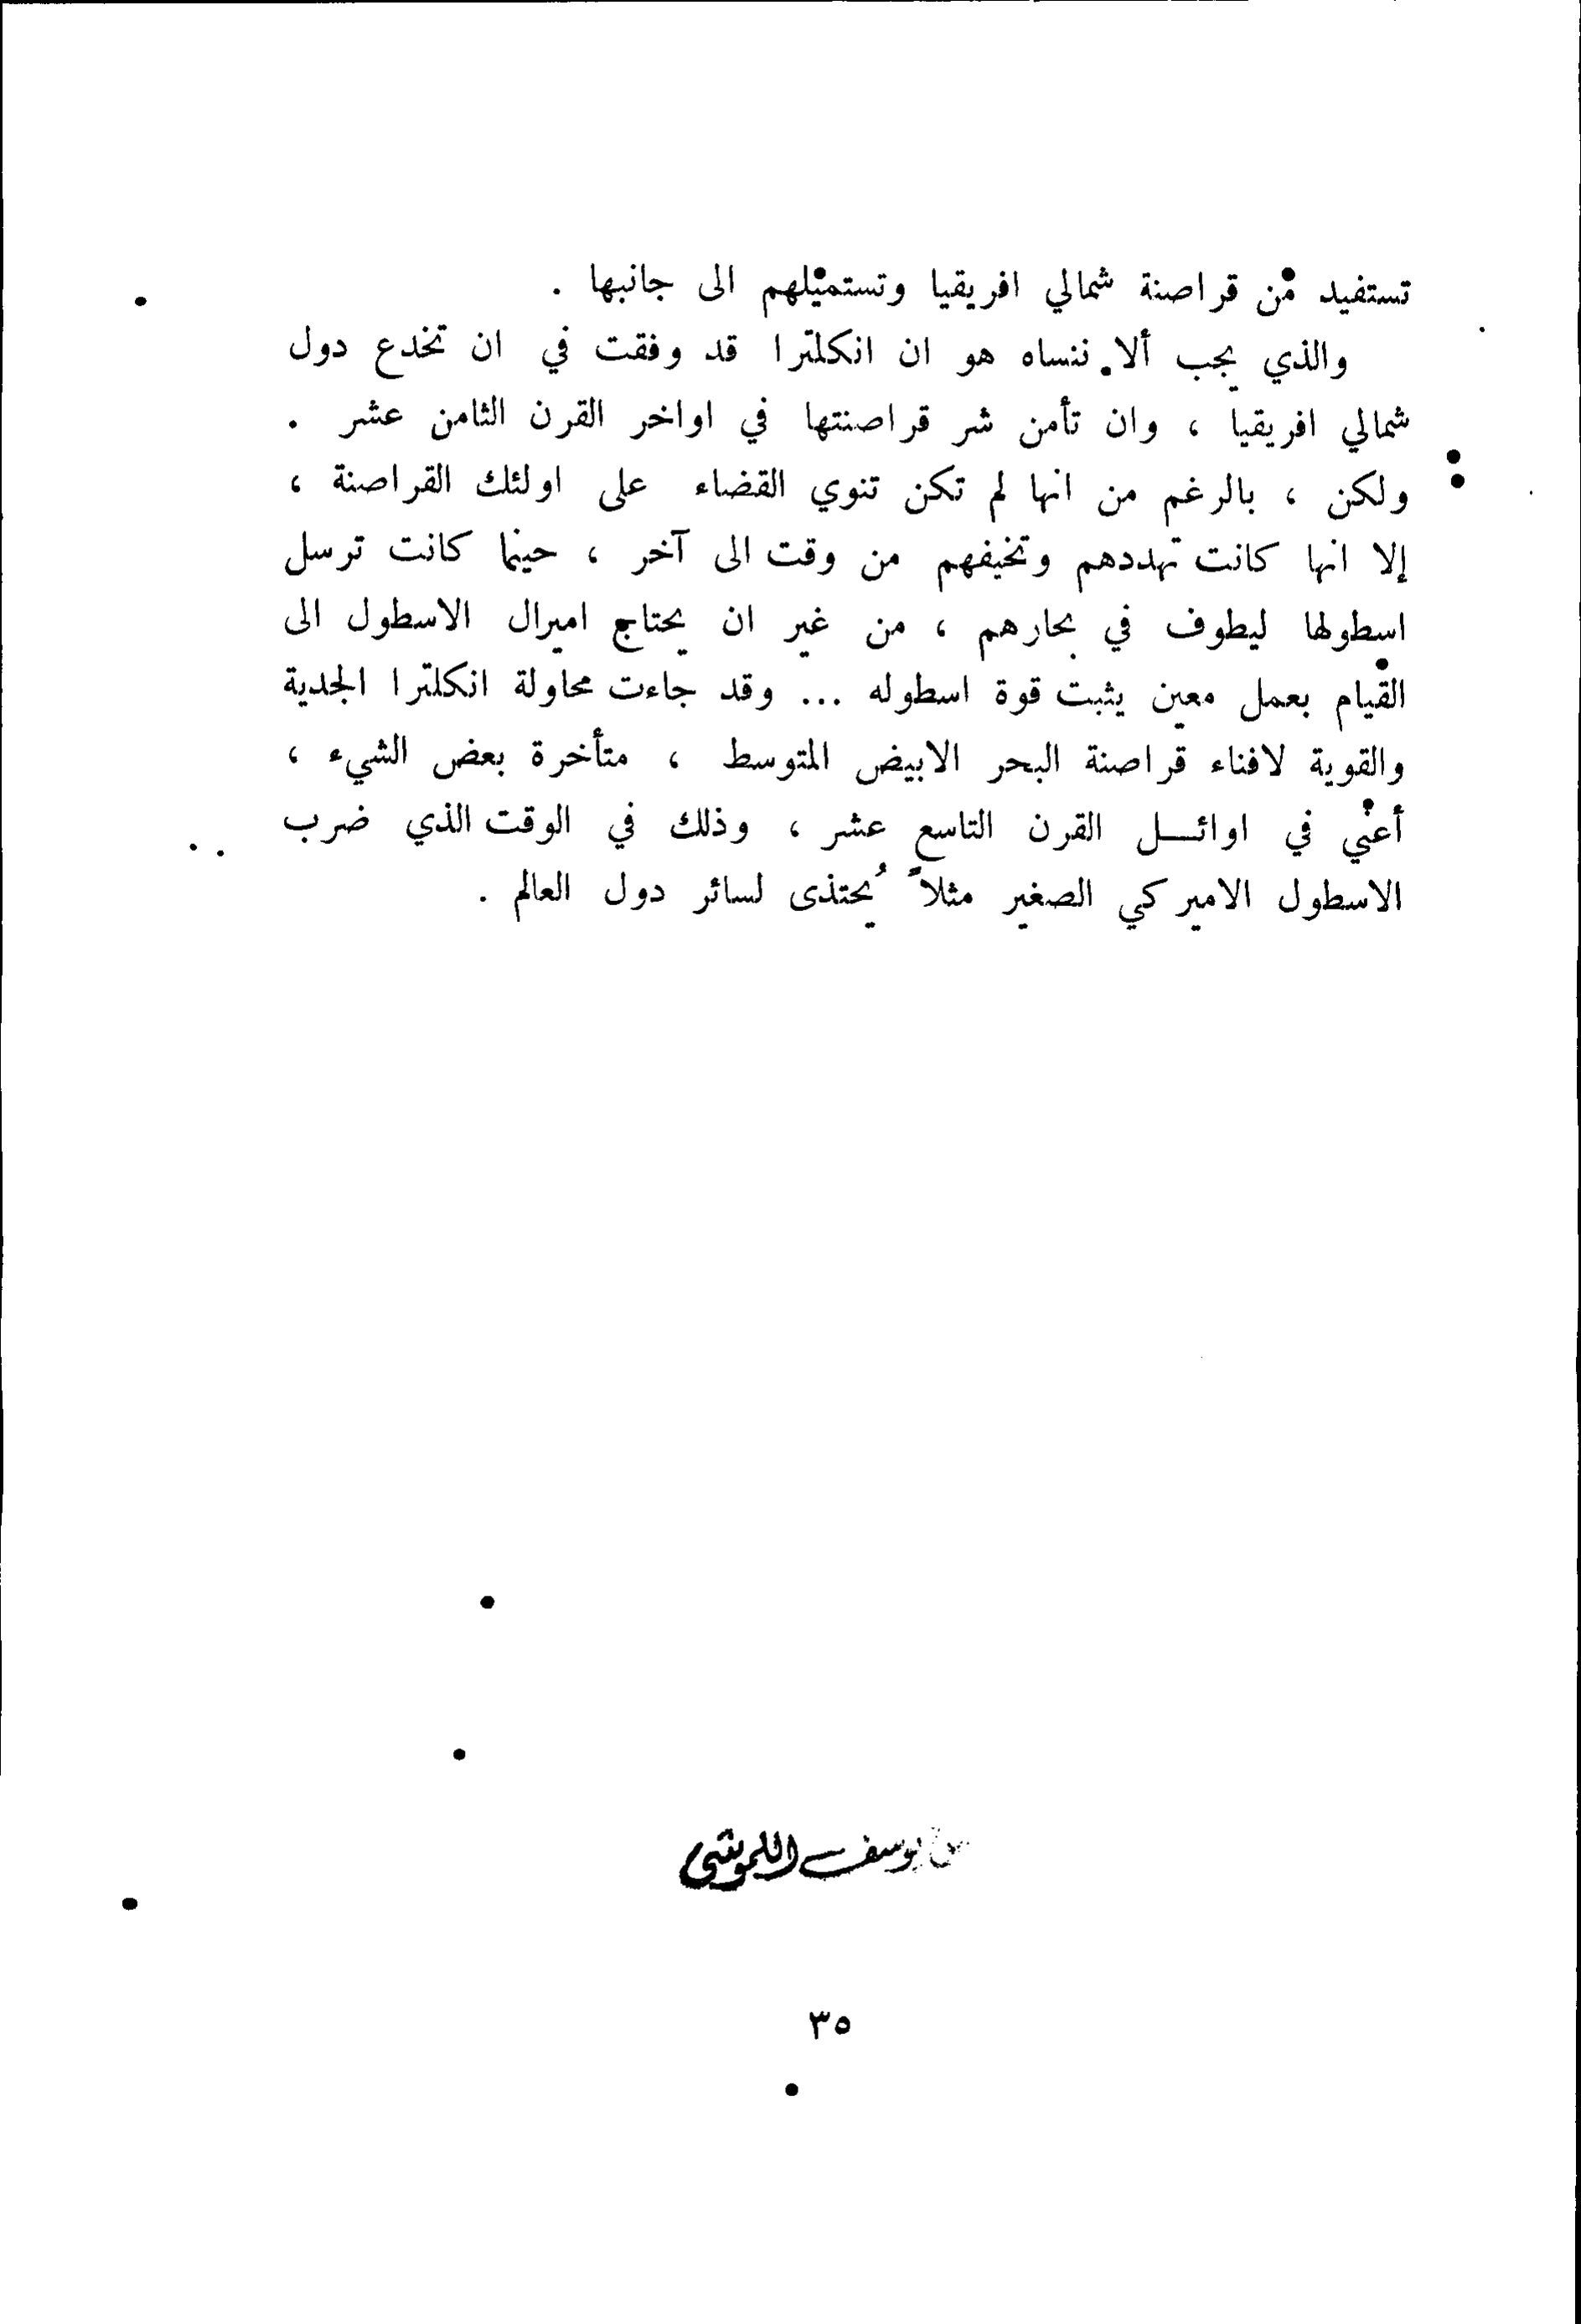 تستفيد من قراصنة شمالي افريقيا وتستميلهم الى جانبها .
والذي يجب ألا ننساه هو ان انكلترا قد وفقت في ان تخدع دول
شمالي افريقيا ، وان تأمن شر قراصنتها في اواخر القرن الثامن عشر .
ولكن ، بالرغم من انها لم تكن تنوي القضاء على اولئك القراصنة ،
إلا انها كانت تهددهم وتخيفهم من وقت الى آخر ، حينما كانت ترسل
اسطولها ليطوف في بحارهم ، من غير ان يحتاج اميرال الاسطول الى
القيام بعمل معين يثبت قوة اسطوله ... وقد جاءت محاولة انكلترا الجدية
والقوية لافناء قراصنة البحر الابيض المتوسط ، متأخرة بعض الشيء ،
أعني في اوائـــل القرن التاسع عشر ، وذلك في الوقت الذي ضرب
الاسطول الاميركي الصغير مثلاً يُحتذى لسائر دول العالم .
يوسف اللموشي
٣٥